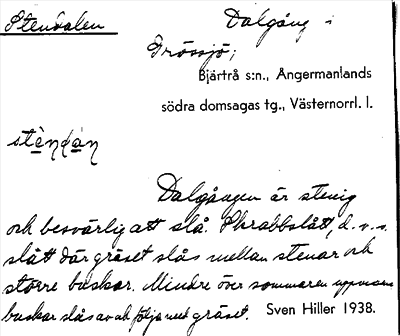 Stendalen
Dalgång i
Frössjö;
Bjärtrå s:n., Ångermanlands
södra domsagas tg., Västernorrl. l.
stèndàn
Dalgången är stenig
och besvärlig att slå. Skrabbslått, d.v.s.
slått där gräset slås mellan stenar och
större buskar. Mindre över sommaren uppvuxna
buskar slås av och följa med gräset. Sven Hiller 1938.